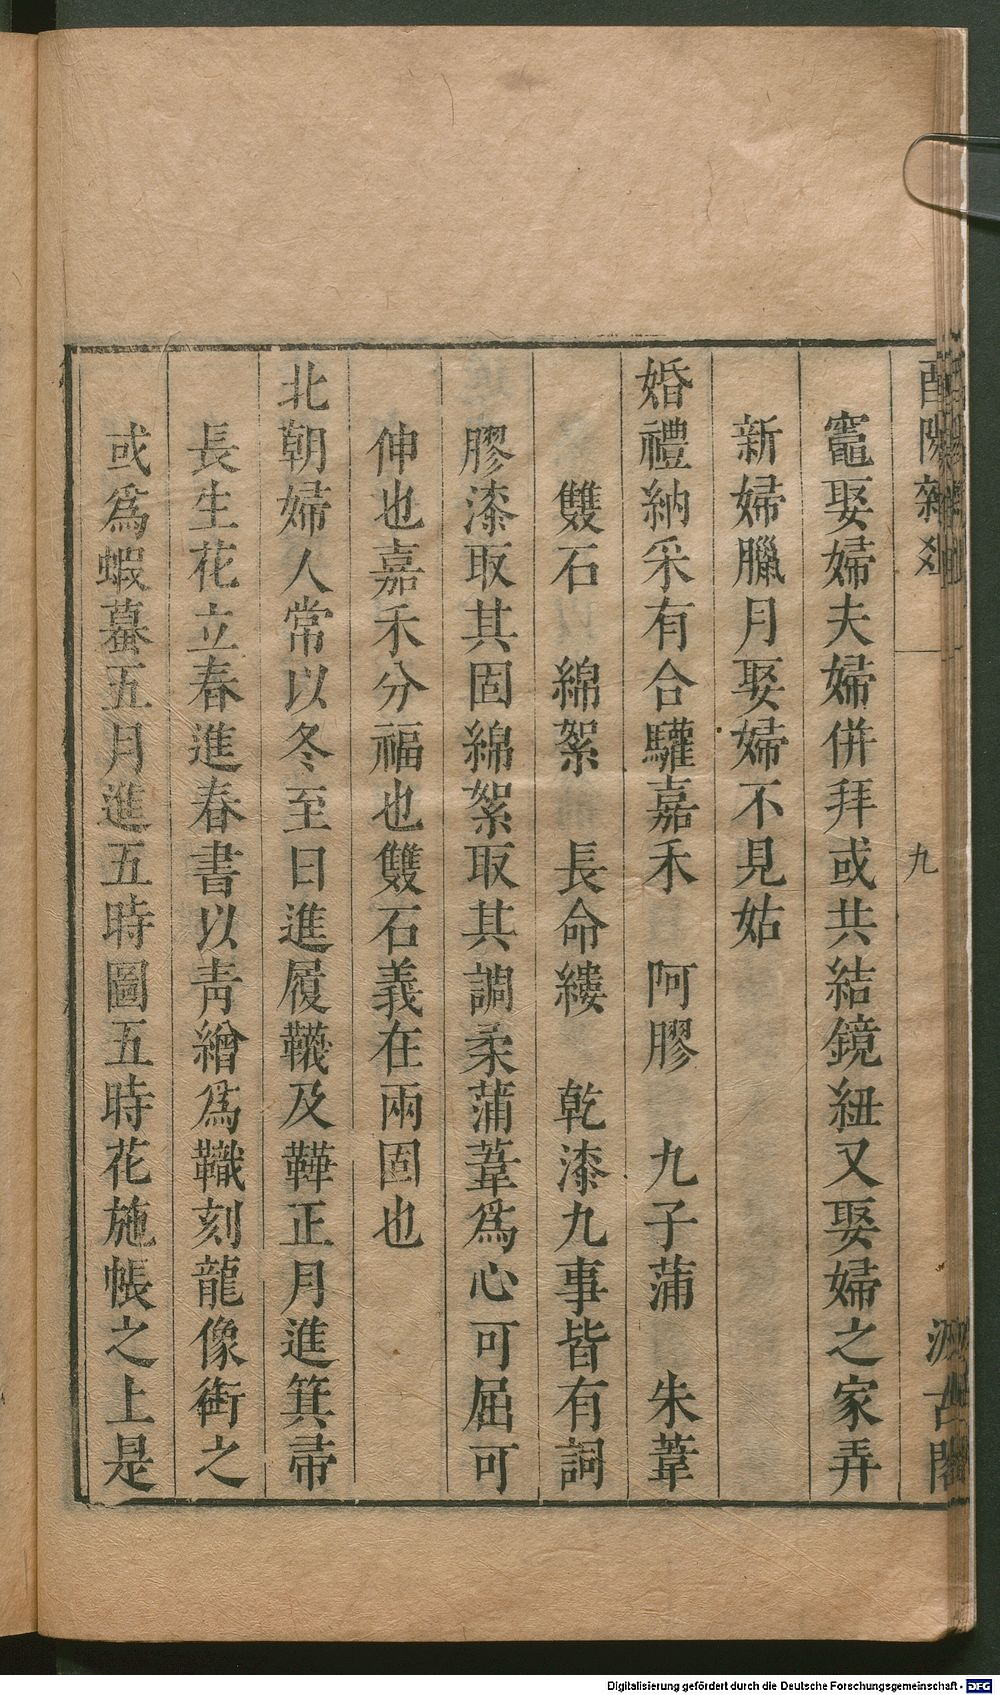 酉陽雜俎
九
汲古閣
竈娶婦夫婦併拜或共結鏡紐又娶婦之家弄
新婦臘月娶婦不見姑
婚禮納采有合驩嘉禾　阿膠　九子蒲　朱葦
雙石　綿絮　長命縷　乾漆九事皆有詞
膠漆取其固綿絮取其調柔蒲葦爲心可屈可
伸也嘉禾分福也雙石義在兩固也
北朝婦人常以冬至日進履韈及鞾正月進箕帚
長生花立春進春書以靑繒爲幟刻龍像銜之
或爲蝦蟇五月進五時圖五時花施帳之上是
Digitalisierung gefördert durch die Deutsche Forschungsgemeinschaft - DFG